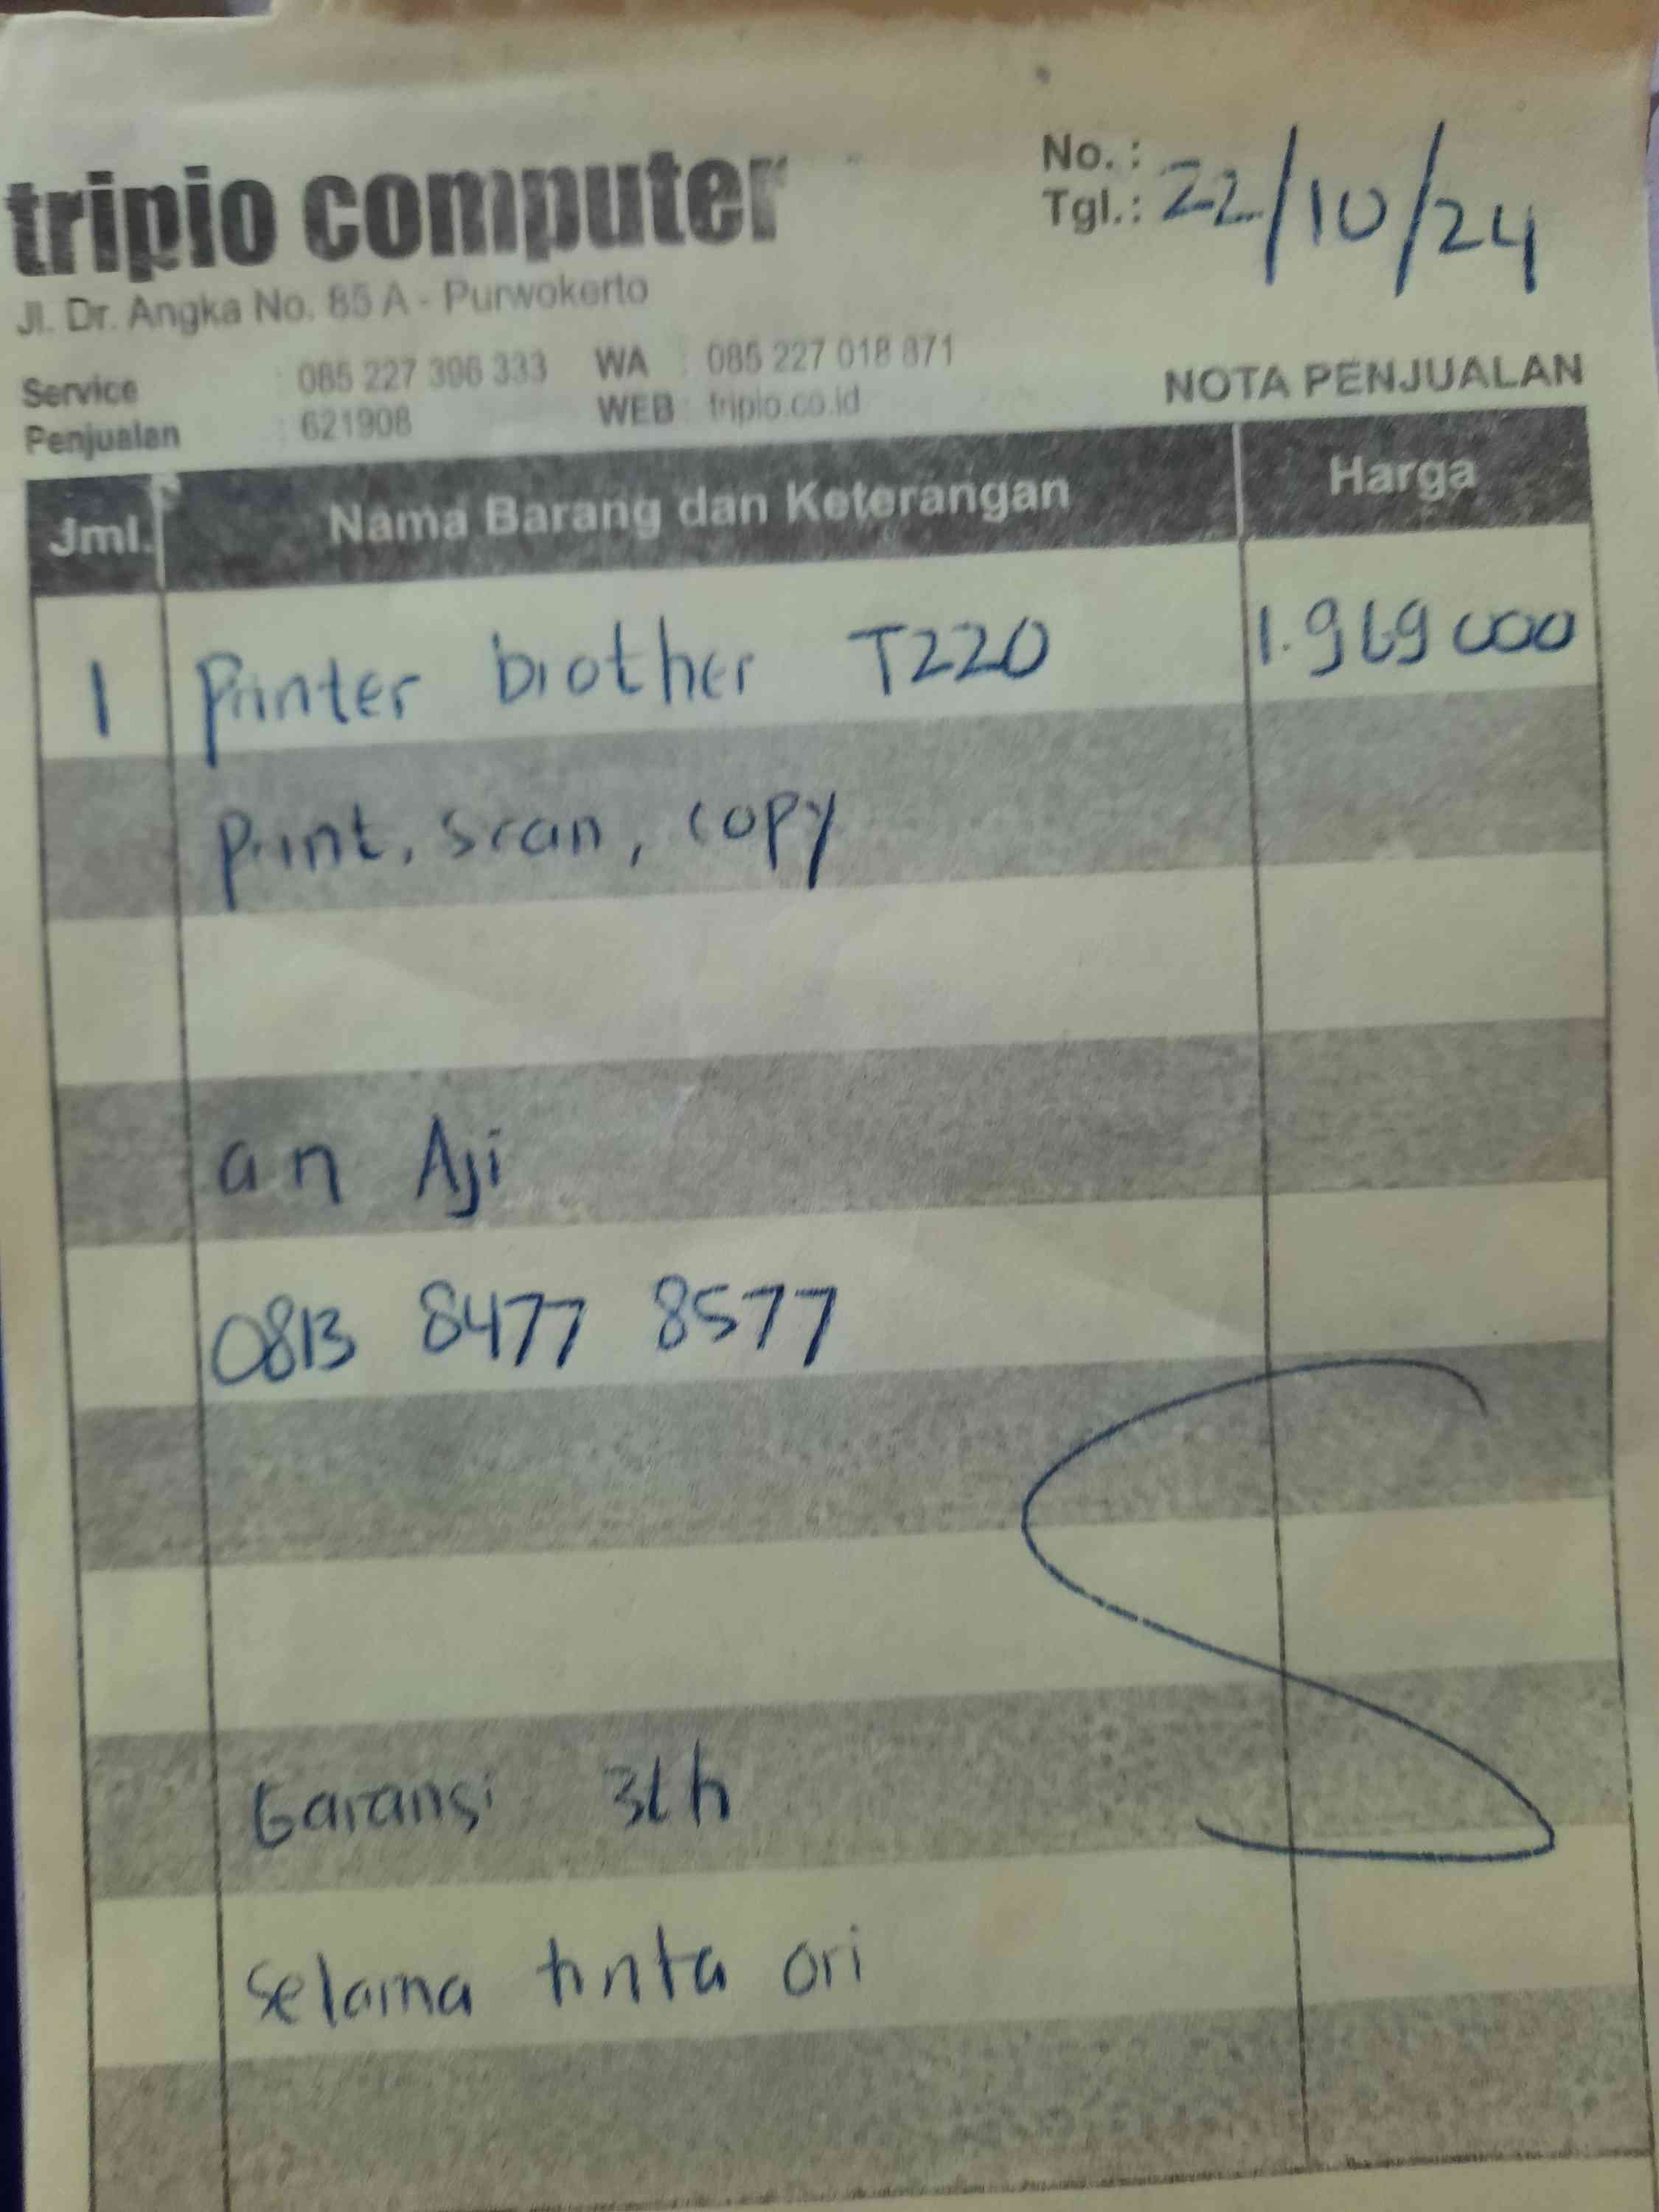 tripio computer
No. :
Tgl.: 22/10/24
Jl. Dr. Angka No. 85 A - Purwokerto
Service : 085 227 396 333 WA : 085 227 018 871
Penjualan : 621908 WEB : tripio.co.id
NOTA PENJUALAN
Jml. Nama Barang dan Keterangan Harga
1 Printer brother T220 1.969 000
Print, scan, copy
an Aji
0813 8477 8577
Garansi 3th
Selama tinta ori